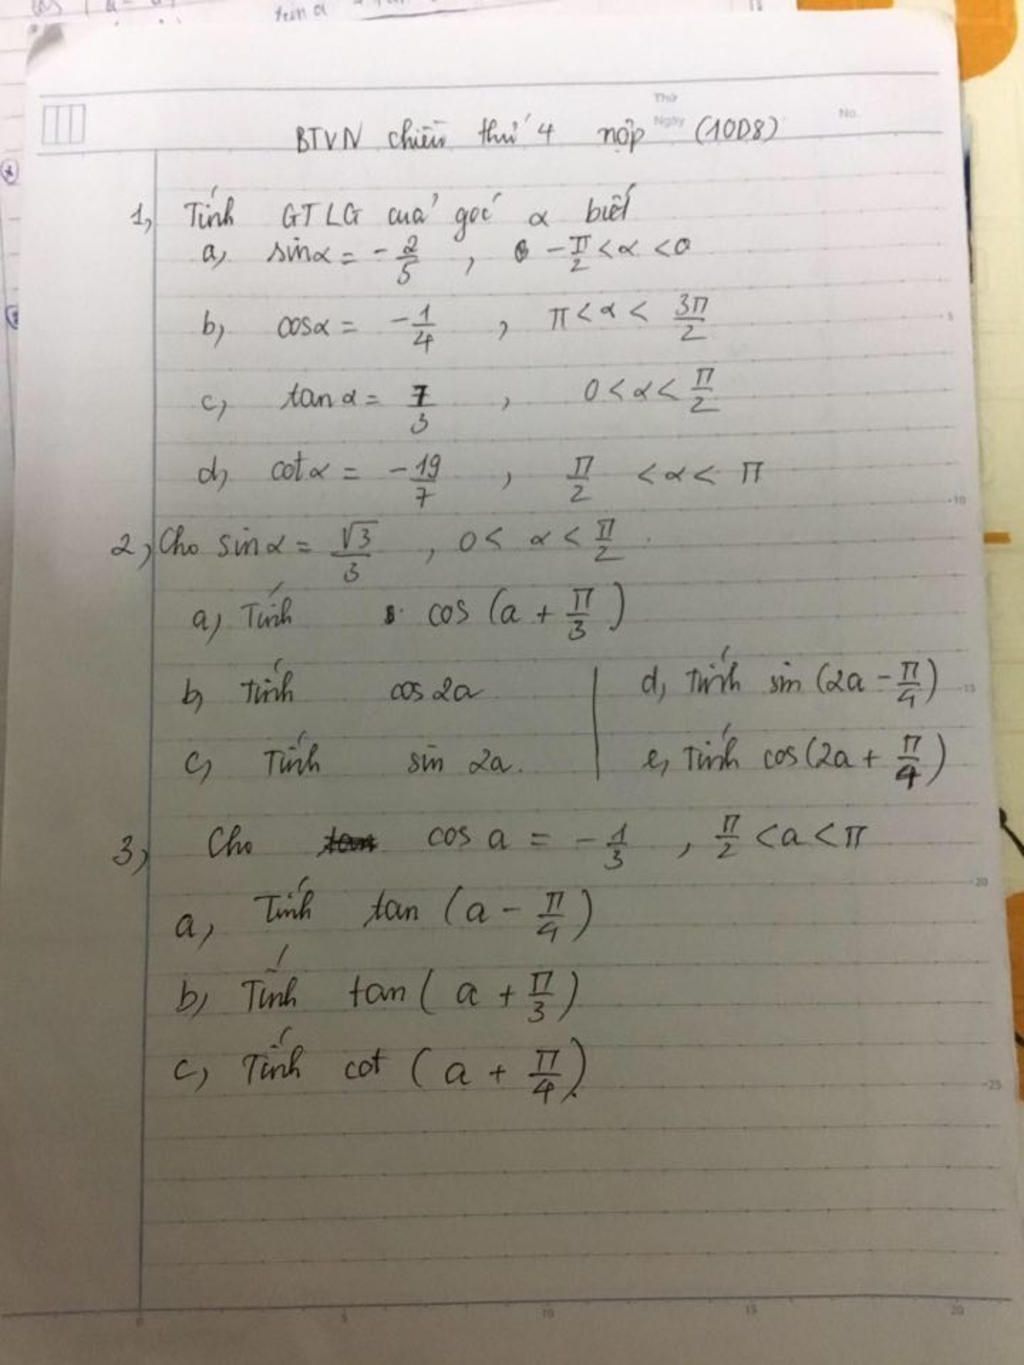 Thứ
Ngày
No.
BTVN chiều thứ 4 nộp (10D8)
1, Tính GTLG của góc α biết
a, sinα = -2/5 , -π/2 < α < 0
b, cosα = -1/4 , π < α < 3π/2
c, tanα = 7/3 , 0 < α < π/2
d, cotα = -19/7 , π/2 < α < π
2, Cho sinα = √3/3 , 0 < α < π/2 .
a, Tính cos (a + π/3)
b, Tính cos 2a
c, Tính sin 2a.
d, Tính sin (2a - π/4)
e, Tính cos (2a + π/4)
3, Cho cos a = -1/3 , π/2 < a < π
a, Tính tan (a - π/4)
b, Tính tan (a + π/3)
c, Tính cot (a + π/4).
5
10
15
20
25
0 5 10 15 20